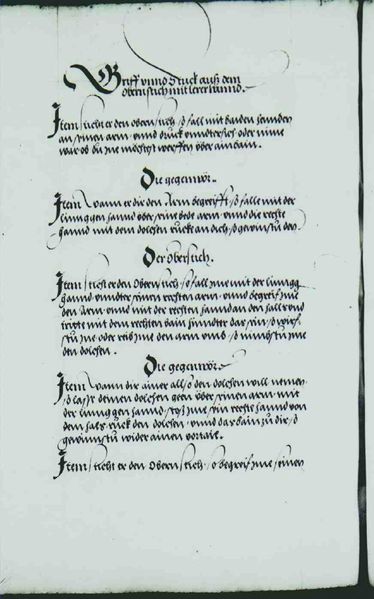 Griff unnd Druck auß dem
oberstich mit lerer hannd.
Item sticht er den oberstich, so fall mit baiden hennden
an seinen arm, unnd druck undtersich oder nime
war ob du jne möchtest werffen über ain bain.
Die gegenwör.
Item Wann er dir den Arm begreifft, so falle mit der
linnggen hannd über seine bede arm, unnd die rechte
hannd mit dem dolchen ruck an dich, so gewinstu den
Der Oberstich.
Item sticht er den Oberstich, so fall jme mit der lingg
hannd undter seinen rechten arm, unnd begreif jme
den Arm, unnd mit der rechten hannd an den hals und
tritt mit dem rechten bain hinndter das sein, so wirfs
tu jne oder reib jme den arm umb, so nimbstu jme
den dolchen.
Die gegenwör.
Item Wann dir ainer also den dolchen will nemen,
so lass deinen dolchen geen über seinen arm, mit
der linnggen hannd, reiß jme sein rechte hannd von
dem hals, ruck den dolchen, unnd das bain zu dir, so
gewinnstu wider ainen vortail.
Item sticht er den Obern stich, so begreif jme seinen